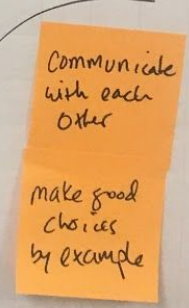 Communicate
with each
Other
make good
choices
by example